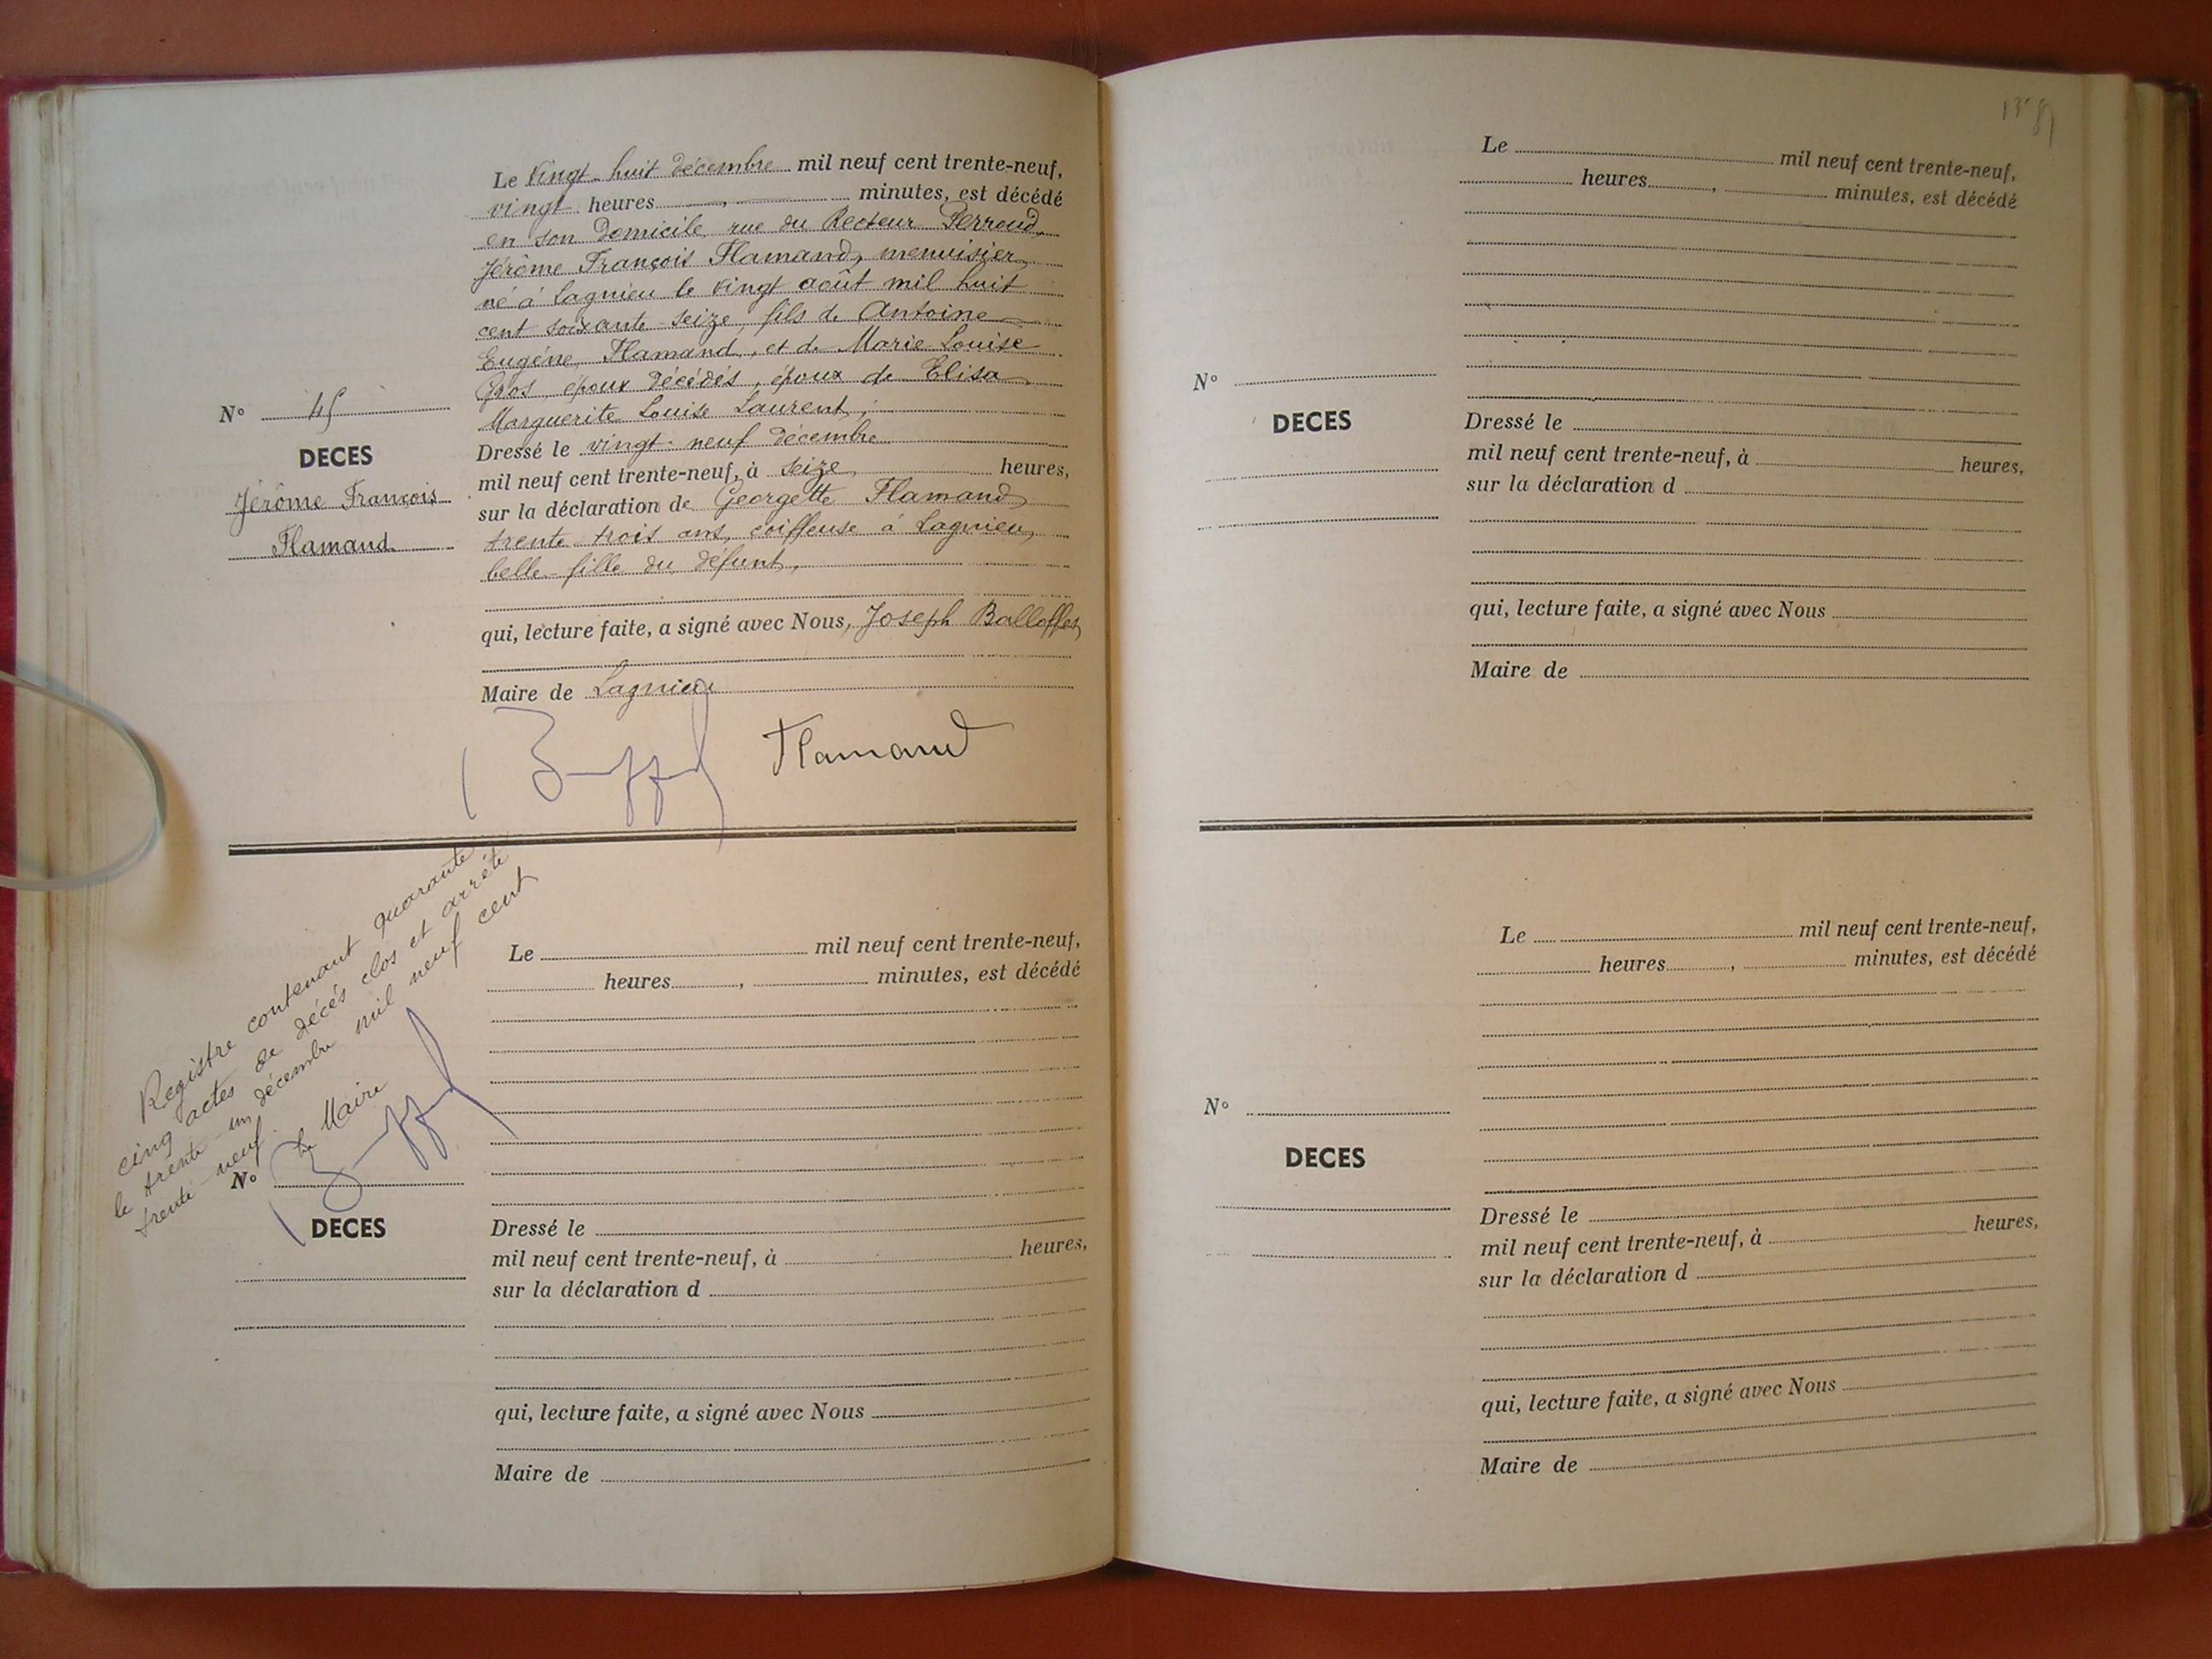 Le Vingt-huit décembre mil neuf cent trente-neuf,
vingt heures , minutes, est décédé
en son domicile, rue du Recteur Perroud,
Jérôme François Flamand, menuisier,
né à Lagnieu le vingt août mil huit
cent soixante-seize, fils de Antoine
Eugène Flamand, et de Marie Louise
Gros, époux décédés, époux de Elisa
Marguerite Louise Laurent,
N° 45
DECES
Jérôme François
Flamand
Dressé le vingt-neuf décembre
mil neuf cent trente-neuf, à seize heures,
sur la déclaration de Georgette Flamand
trente-trois ans, coiffeuse à Lagnieu,
belle-fille du défunt,
qui, lecture faite, a signé avec Nous, Joseph Balloffet,
Maire de Lagnieu
Flamand
Registre contenant quarante
cinq actes de décès clos et arrêté
le trente-un décembre mil neuf cent
trente-neuf.
Le Maire
Le mil neuf cent trente-neuf,
heures , minutes, est décédé
N°
DECES
Dressé le
mil neuf cent trente-neuf, à heures,
sur la déclaration d
qui, lecture faite, a signé avec Nous
Maire de
Le mil neuf cent trente-neuf,
heures , minutes, est décédé
N°
DECES
Dressé le
mil neuf cent trente-neuf, à heures,
sur la déclaration d
qui, lecture faite, a signé avec Nous
Maire de
Le mil neuf cent trente-neuf,
heures , minutes, est décédé
N°
DECES
Dressé le
mil neuf cent trente-neuf, à heures,
sur la déclaration d
qui, lecture faite, a signé avec Nous
Maire de